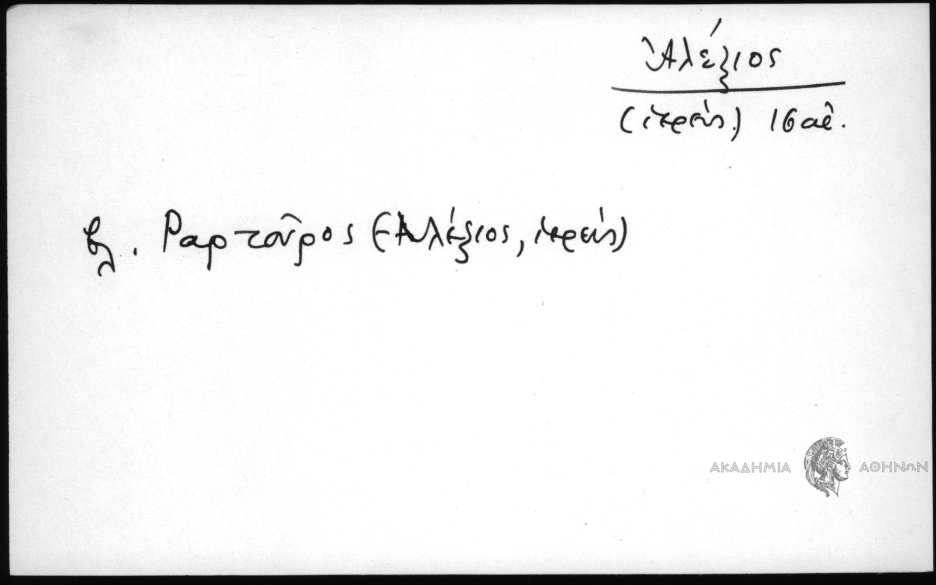 Ἀλέξιος
(ἱερεύς) 16 αἰ.
βλ. Ραρτοῦρος (Ἀλέξιος, ἱερεύς)
ΑΚΑΔΗΜΙΑ ΑΘΗΝΩΝ